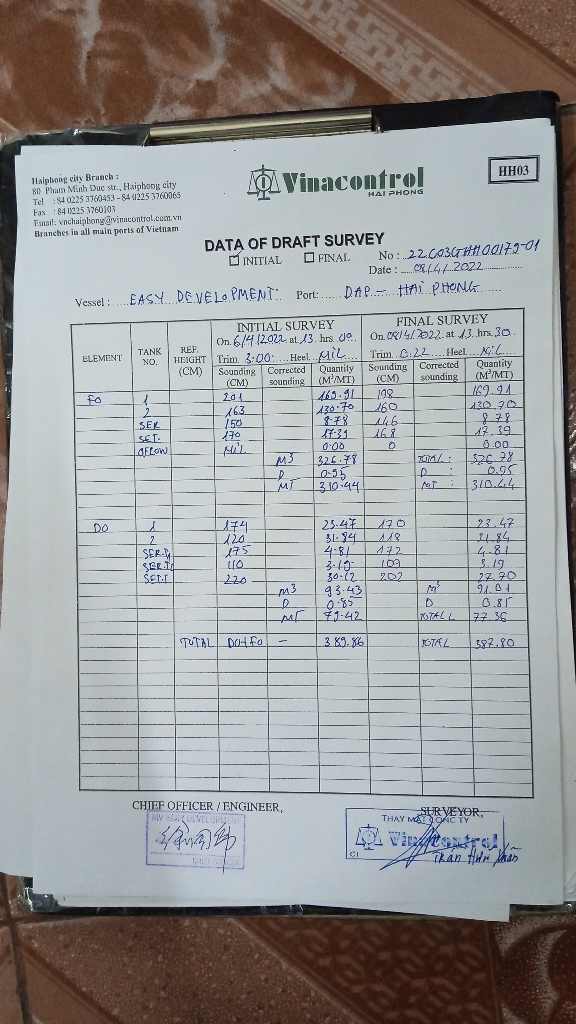 Haiphong city Branch :
80 Pham Minh Duc str., Haiphong city
Tel : 84 0225 3760453 - 84 0225 3760065
Fax : 84 0225 3760103
Email: vnchaiphong@vinacontrol.com.vn
Branches in all main ports of Vietnam
Vinacontrol
HAI PHONG
HH03
DATA OF DRAFT SURVEY
INITIAL FINAL
No : 22G03GHH00179-01
Date : 08/4/2022
Vessel : EASY DEVELOPMENT. Port: DAP - HAI PHONG
ELEMENT TANK NO. REF. HEIGHT (CM) INITIAL SURVEY FINAL SURVEY
On 6/4/2022 at 13 hrs 00 On 08/4/2022 at 13 hrs 30
Trim 3.00 Heel NIL Trim 0.22 Heel NIL
Sounding (CM) Corrected sounding Quantity (M³/MT) Sounding (CM) Corrected sounding Quantity (M³/MT)
FO 1 201 169.91 198 169.91
2 163 130.70 160 130.70
SER 150 8.78 146 8.78
SET. 170 17.39 168 17.39
OFLOW NIL 0.00 0 0.00
M3 326.78 TOTAL : 326.78
D 0.95 D : 0.95
MT 310.44 MT : 310.44
DO 1 174 23.47 170 23.47
2 120 31.84 118 31.84
SER.P 175 4.81 172 4.81
110 3.19 109 3.19
SET.T 220 30.12 202 27.70
M3 93.43 M³ 91.01
D 0.85 D 0.85
MT 79.42 TOTAL 77.36
TOTAL DO+FO - 389.86 TOTAL 387.80
CHIEF OFFICER / ENGINEER, SURVEYOR,
MV EASY DEVELOPMENT
THAY MẶT CÔNG TY
Vinacontrol
CI